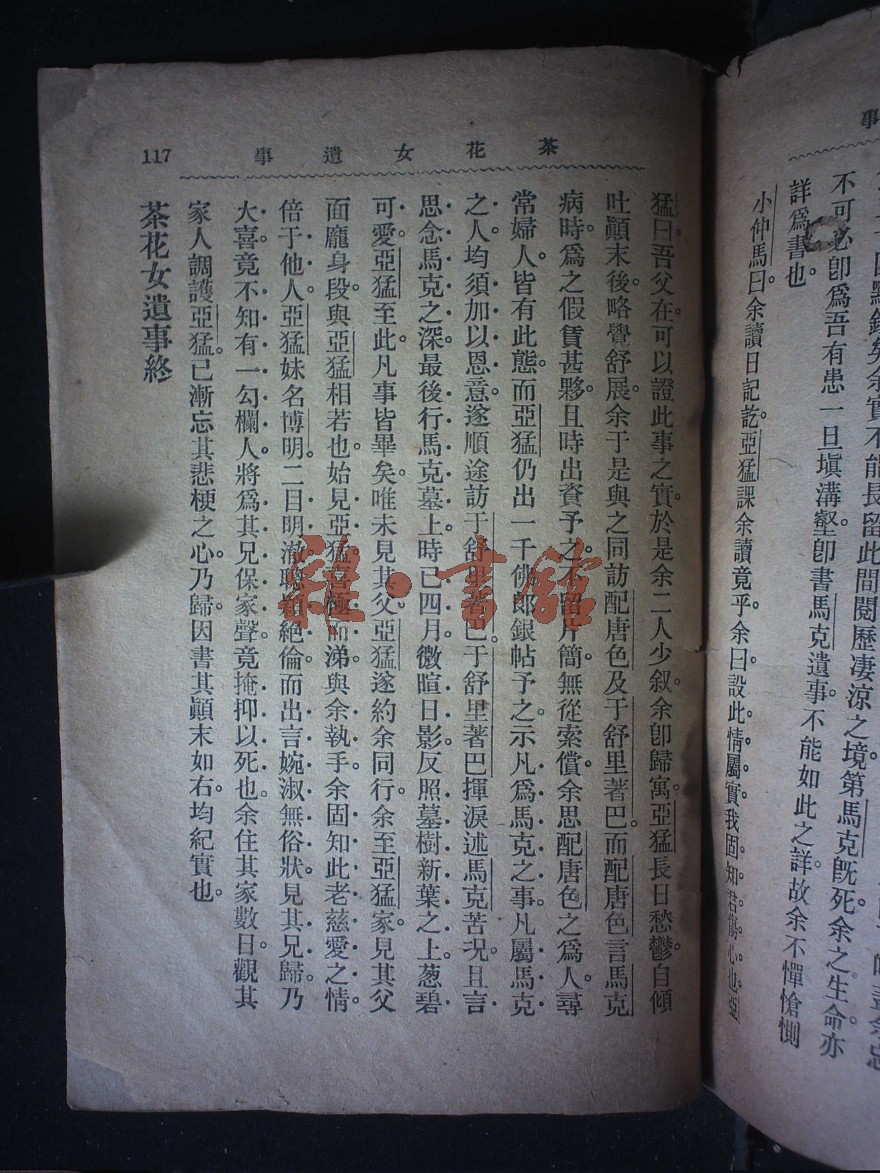 事
不可必卽爲吾有患一旦塡溝壑卽書馬克遺事不能如此之詳故余不憚愴惻
詳爲書也。
小仲馬曰余讀日記訖亞猛謂余讀竟乎。余曰設此情屬實我固知君傷心也亞
茶花女遺事
117
猛曰吾父在可以證此事之實。於是余二人少叙。余卽歸寓亞猛長日愁鬱。自傾
吐顚末。後略覺舒展。余于是與之同訪配唐色及于舒里著巴。而配唐色言馬克
病時。爲之假賃甚夥。且時出資予之。不留片簡。無從索償。余思配唐色之爲人。尋
常婦人。皆有此態。而亞猛仍出一千佛郎銀帖予之。示凡爲馬克之事。凡屬馬克
之人。均須加以恩意。遂順途訪于舒里著巴。于舒里著巴揮淚述馬克苦况。且言
思念馬克之深。最後行馬克墓上。時已四月。微暄日影。反照墓樹新葉之上。葱碧
可愛。亞猛至此。凡事皆畢矣。唯未見其父。亞猛遂約余同行。余至亞猛家。見其父
面龐身段。與亞猛相若也。始見亞猛。喜極而涕。與余執手。余固知此老慈愛之情
倍于他人。亞猛妹名博明。二目明澈。聰穎絕倫。而出言婉淑無俗狀。見其兄歸。乃
大喜。竟不知有一勾欄人。將爲其兄保家聲。竟掩抑以死也。余住其家數日。觀其
家人調護亞猛。已漸忘其悲梗之心。乃歸。因書其顚末如右。均紀實也。
茶花女遺事終
雜·書館